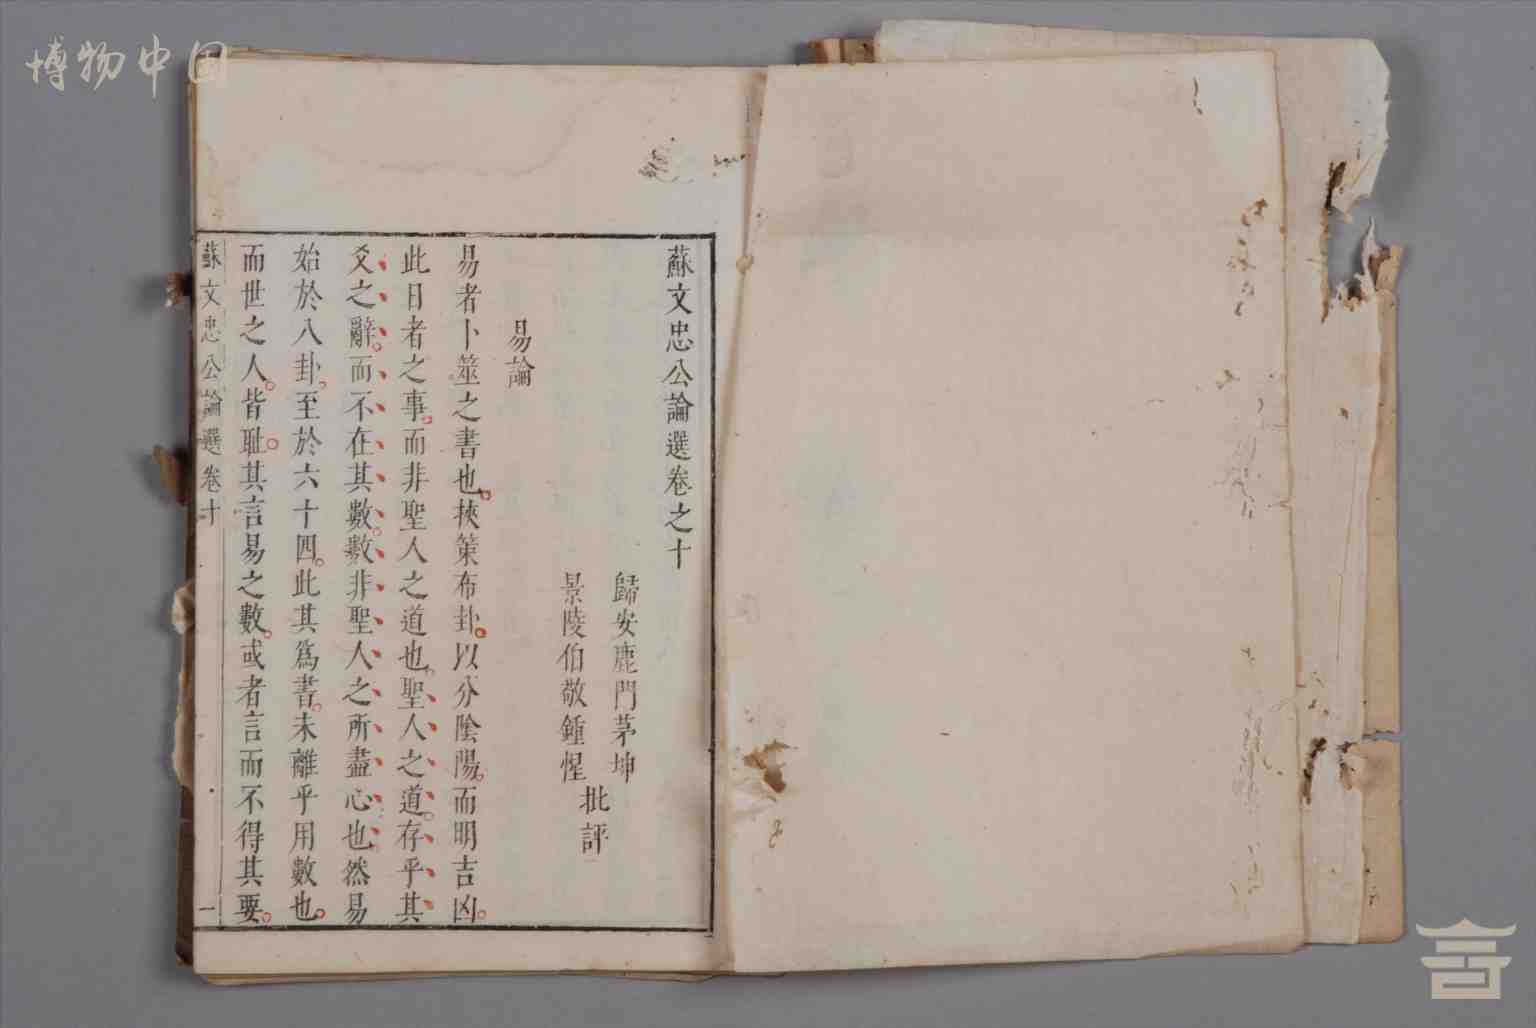 博物中国
蘇文忠公論選卷之十
歸安鹿門茅坤
景陵伯敬鍾惺
批評
易論
易者卜筮之書也挾策布卦以分陰陽而明吉凶
此日者之事而非聖人之道也聖人之道存乎其
爻之辭而不在其數數非聖人之所盡心也然易
始於八卦至於六十四此其爲書未離乎用數也
而世之人皆耻其言易之數或者言而不得其要
蘇文忠公論選卷十
一